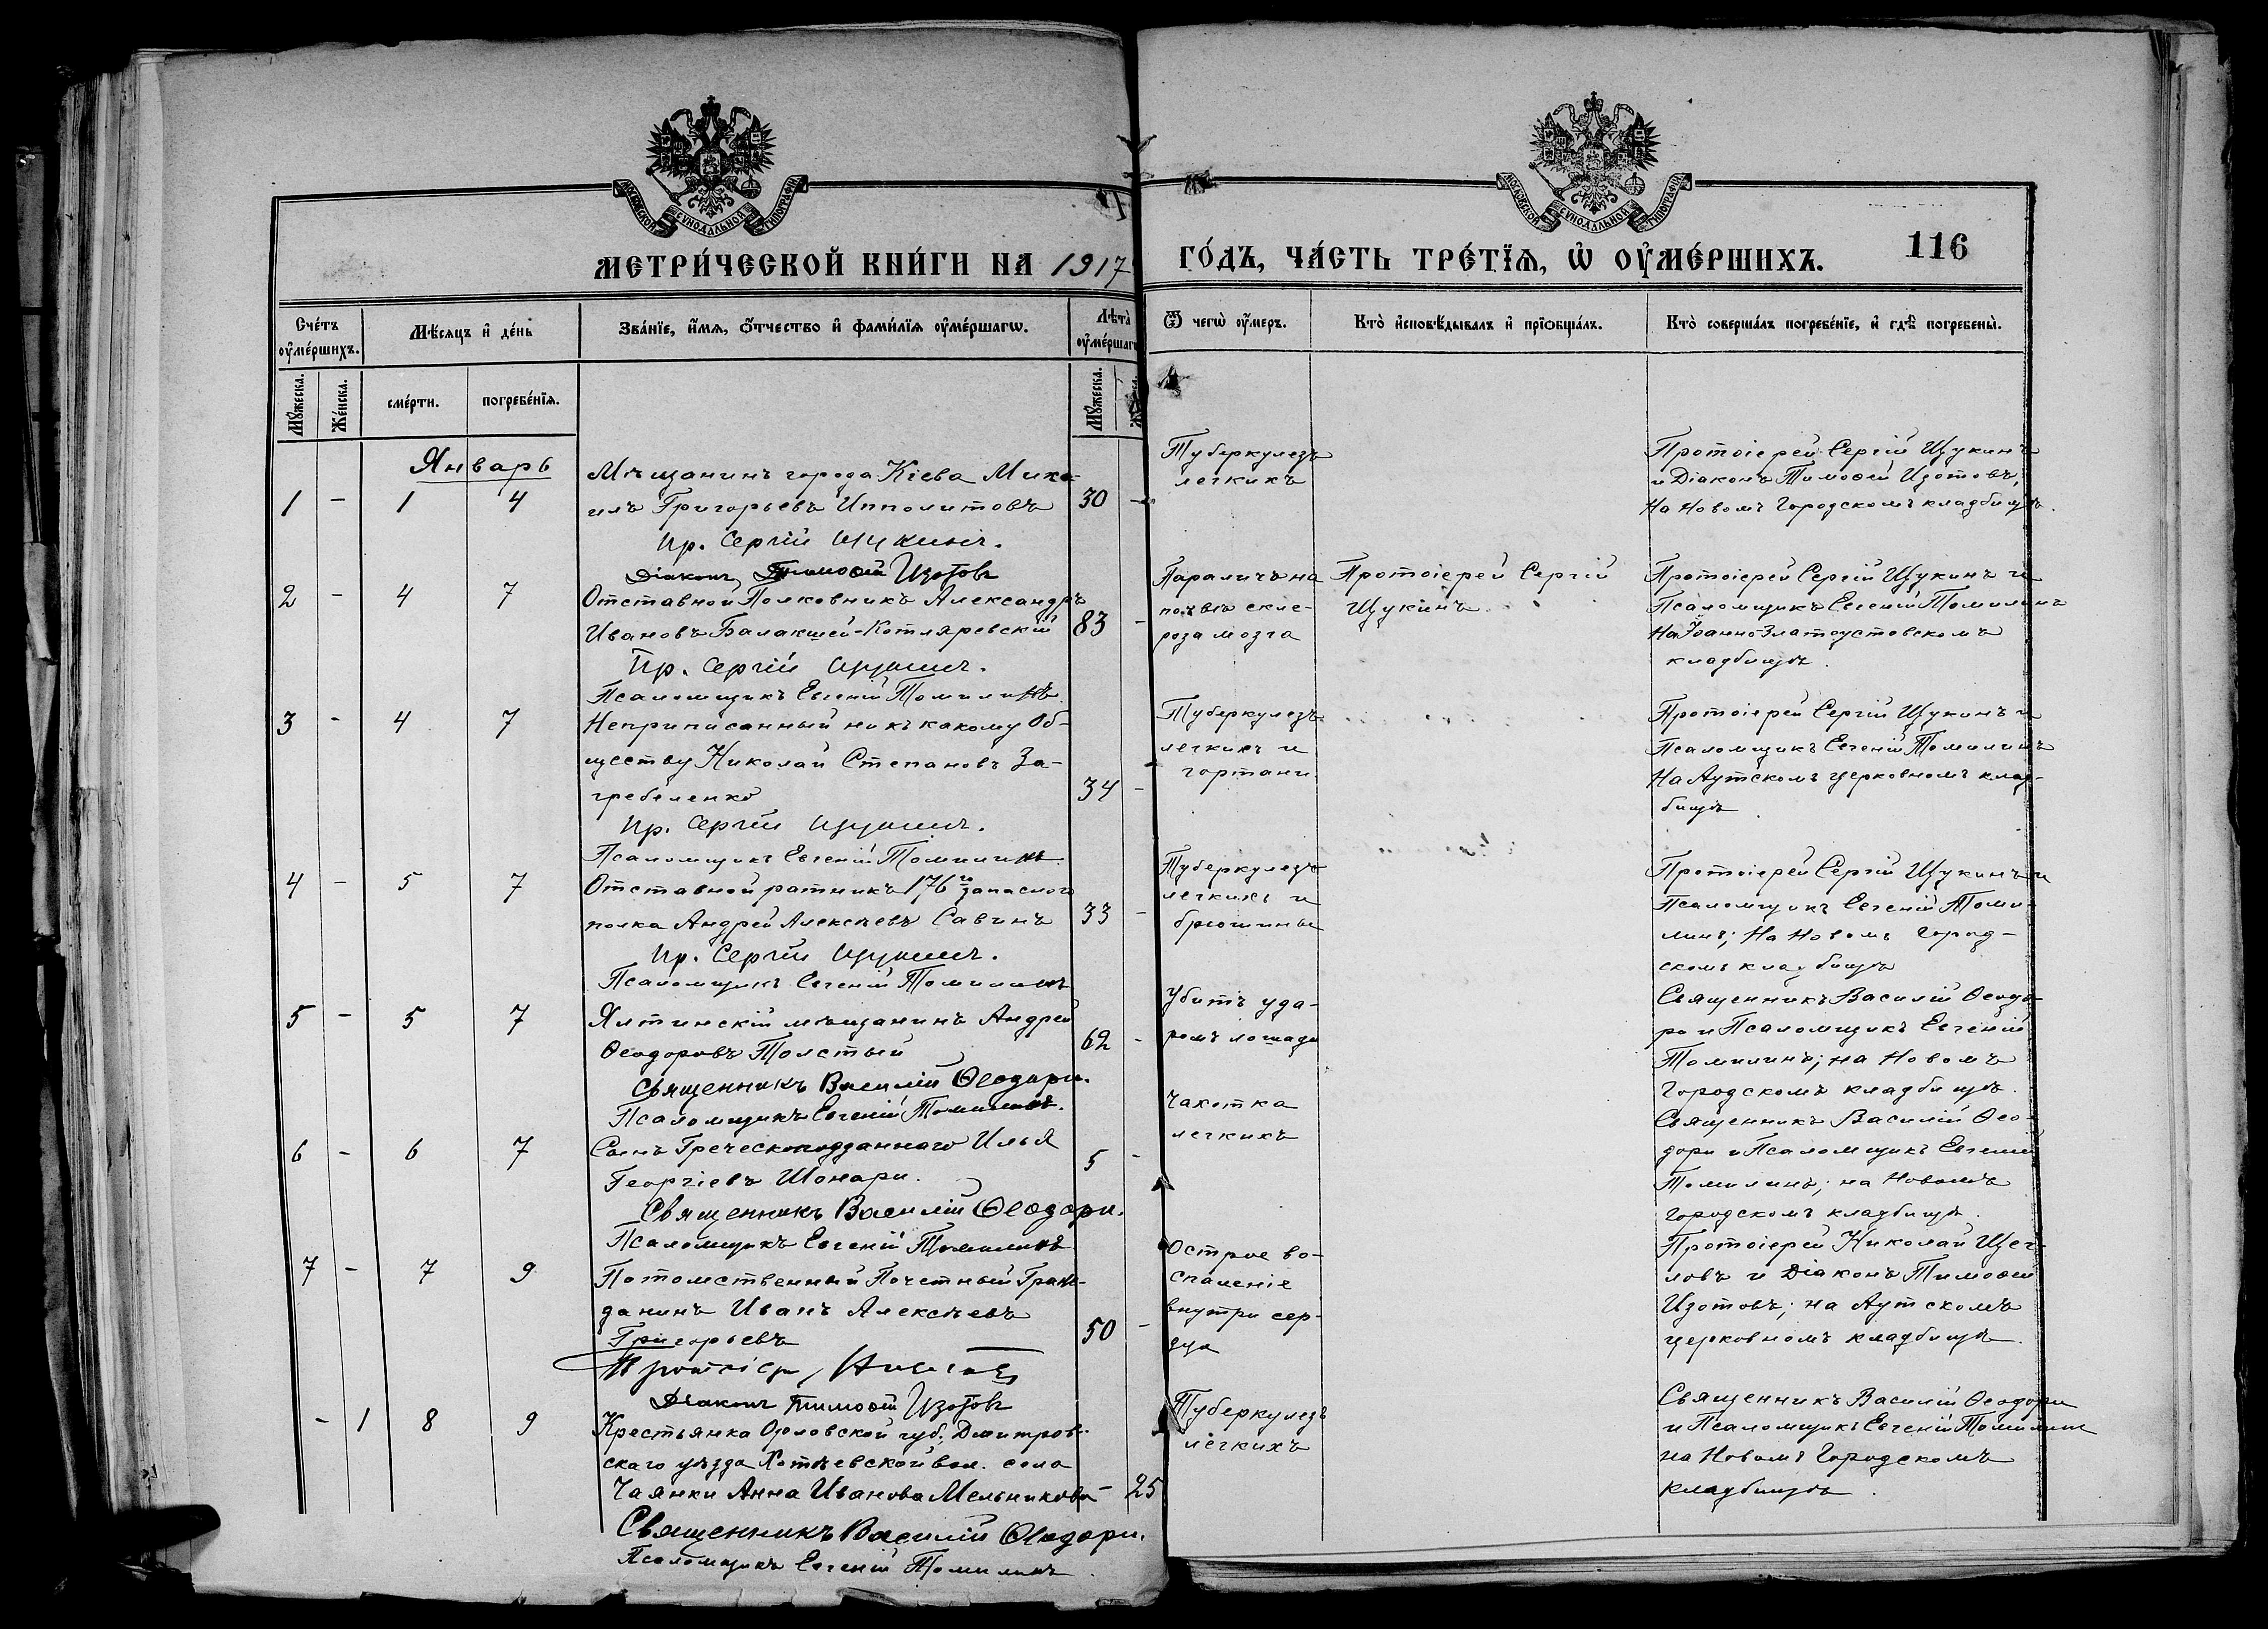 МОСКОВСКОЙ СѴНОДАЛЬНОЙ ТИПОГРАФІИ
МОСКОВСКОЙ СѴНОДАЛЬНОЙ ТИПОГРАФІИ
МЕТРИ́ЧЕСКОЙ КНИ́ГИ НА 1917
ГО́ДЪ, ЧА́СТЬ ТРЕ́ТЇѦ, Ѡ҆ ОУ҆МЕ́РШИХЪ.
116
Сче́тъ оу҆ме́ршихъ.
Мѣ́сѧцъ и҆ де́нь
Зва́нїе, и҆́мѧ, ѻ҆́тчество и҆ фами́лїѧ оу҆ме́ршагѡ.
Лѣта̀ оу҆ме́ршагѡ
Ѿ чегѡ̀ оу҆́меръ.
Кто̀ и҆сповѣ́дывалъ и҆ прїѡбща́лъ.
Кто̀ соверша́лъ погребе́нїе, и҆ гдѣ̀ погребены̀.
Мꙋ́жеска.
Же́нска.
сме́рти.
погребе́нїѧ.
Мꙋ́жеска.
Январь
1 - 1 4
Мѣщанинъ города Кіева Миха-
илъ Григорьевъ Ипполитовъ
30 -
Пр. Сергій Щукинъ.
Діаконъ Тимоѳей Изотовъ
Туберкулезъ
легкихъ
Протоіерей Сергій Щукинъ
и Діаконъ Тимоѳей Изотовъ,
На Новомъ Городскомъ кладбищѣ.
2 - 4 7
Отставной Полковникъ Александръ
Ивановъ Балакшей-Котляревскій
83 -
Пр. Сергій Щукинъ.
Псаломщикъ Евгеній Томилинъ
Параличъ на
почвѣ скле-
роза мозга
Протоіерей Сергій
Щукинъ
Протоіерей Сергій Щукинъ и
Псаломщикъ Евгеній Томилинъ
На Іоанно-Златоустовскомъ
кладбищѣ.
3 - 4 7
Неприписанный ни къ какому Об-
ществу Николай Степановъ За-
гребеленко
34 -
Пр. Сергій Щукинъ.
Псаломщикъ Евгеній Томилинъ
Туберкулезъ
легкихъ и
гортани.
Протоіерей Сергій Щукинъ и
Псаломщикъ Евгеній Томилинъ
На Аутскомъ церковномъ клад-
бищѣ.
4 - 5 7
Отставной ратникъ 176го запаснаго
полка Андрей Алексѣевъ Савинъ
33 -
Пр. Сергій Щукинъ.
Псаломщикъ Евгеній Томилинъ
Туберкулезъ
легкихъ и
брюшины
Протоіерей Сергій Щукинъ и
Псаломщикъ Евгеній Томи-
линъ; На Новомъ Город-
скомъ кладбищѣ
5 - 5 7
Ялтинскій мѣщанинъ Андрей
Ѳеодоровъ Толстый
62 -
Священникъ Василій Ѳеодори.
Псаломщикъ Евгеній Томилинъ.
Убитъ уда-
ромъ лошади
Священникъ Василій Ѳеодо-
ри и Псаломщикъ Евгеній
Томилинъ; на Новомъ
Городскомъ кладбищѣ.
6 - 6 7
Сынъ Греческоподданнаго Илья
Георгіевъ Шонари.
5 -
Священникъ Василій Ѳеодори.
Псаломщикъ Евгеній Томилинъ
Чахотка
легкихъ
Священникъ Василій Ѳео-
дори и Псаломщикъ Евгеній
Томилинъ; на Новомъ
городскомъ кладбищѣ.
7 - 7 9
Потомственный Почетный Граж-
данинъ Иванъ Алексѣевъ
Григорьевъ
50 -
Діаконъ Тимоѳей Изотовъ
Острое во-
спаленіе
внутри сер-
дца
Протоіерей Николай Щег-
ловъ и Діаконъ Тимоѳей
Изотовъ; на Аутскомъ
церковномъ кладбищѣ.
- 1 8 9
Крестьянка Орловской губ. Дмитров-
скаго уѣзда Хотѣевской вол. села
Чаянки Анна Иванова Мельникова
- 25
Священникъ Василій Ѳеодори.
Псаломщикъ Евгеній Томилинъ
Туберкулезъ
легкихъ
Священникъ Василій Ѳеодори
и Псаломщикъ Евгеній Томилинъ
на Новомъ Городскомъ
кладбищѣ.